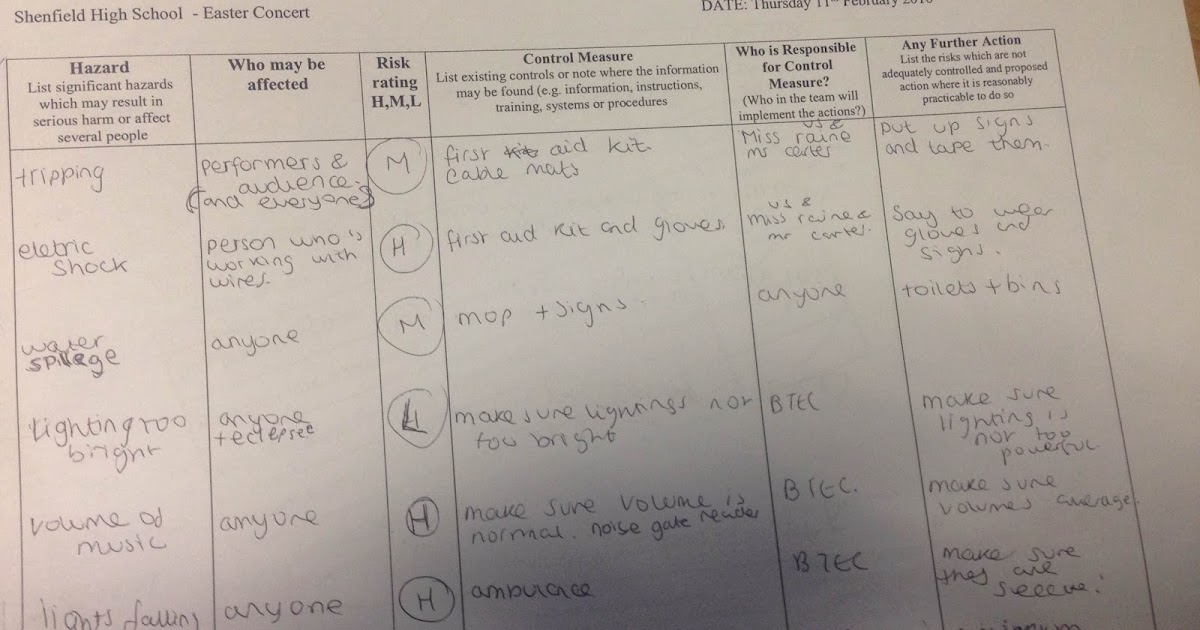 Shenfield High School - Easter Concert
DATE: Thursday 11th February
Hazard
List significant hazards
which may result in
serious harm or affect
several people
Who may be
affected
Risk
rating
H,M,L
Control Measure
List existing controls or note where the information
may be found (e.g. information, instructions,
training, systems or procedures
Who is Responsible
for Control
Measure?
(Who in the team will
implement the actions?)
Any Further Action
List the risks which are not
adequately controlled and proposed
action where it is reasonably
practicable to do so
tripping
performers &
audience.
(and everyone)
M
first aid kit.
cable mats
us &
Miss raine
mr carter
put up signs
and tape them.
eletric
shock
person who's
working with
wires.
H
first aid kit and gloves.
us &
miss raine &
mr carter.
Say to wear
gloves and
signs.
water
spillage
anyone
M
mop + signs
anyone
toilets + bins
lighting too
bright
anyone
L
make sure lightings not
too bright
BTEC
make sure
lighting is
not too
powerful.
volume of
music
anyone
H
make sure volume is
normal. noise gate reader
BTEC.
make sure
volumes average.
lights falling
anyone
H
ambulance
BTEC
make sure
they are